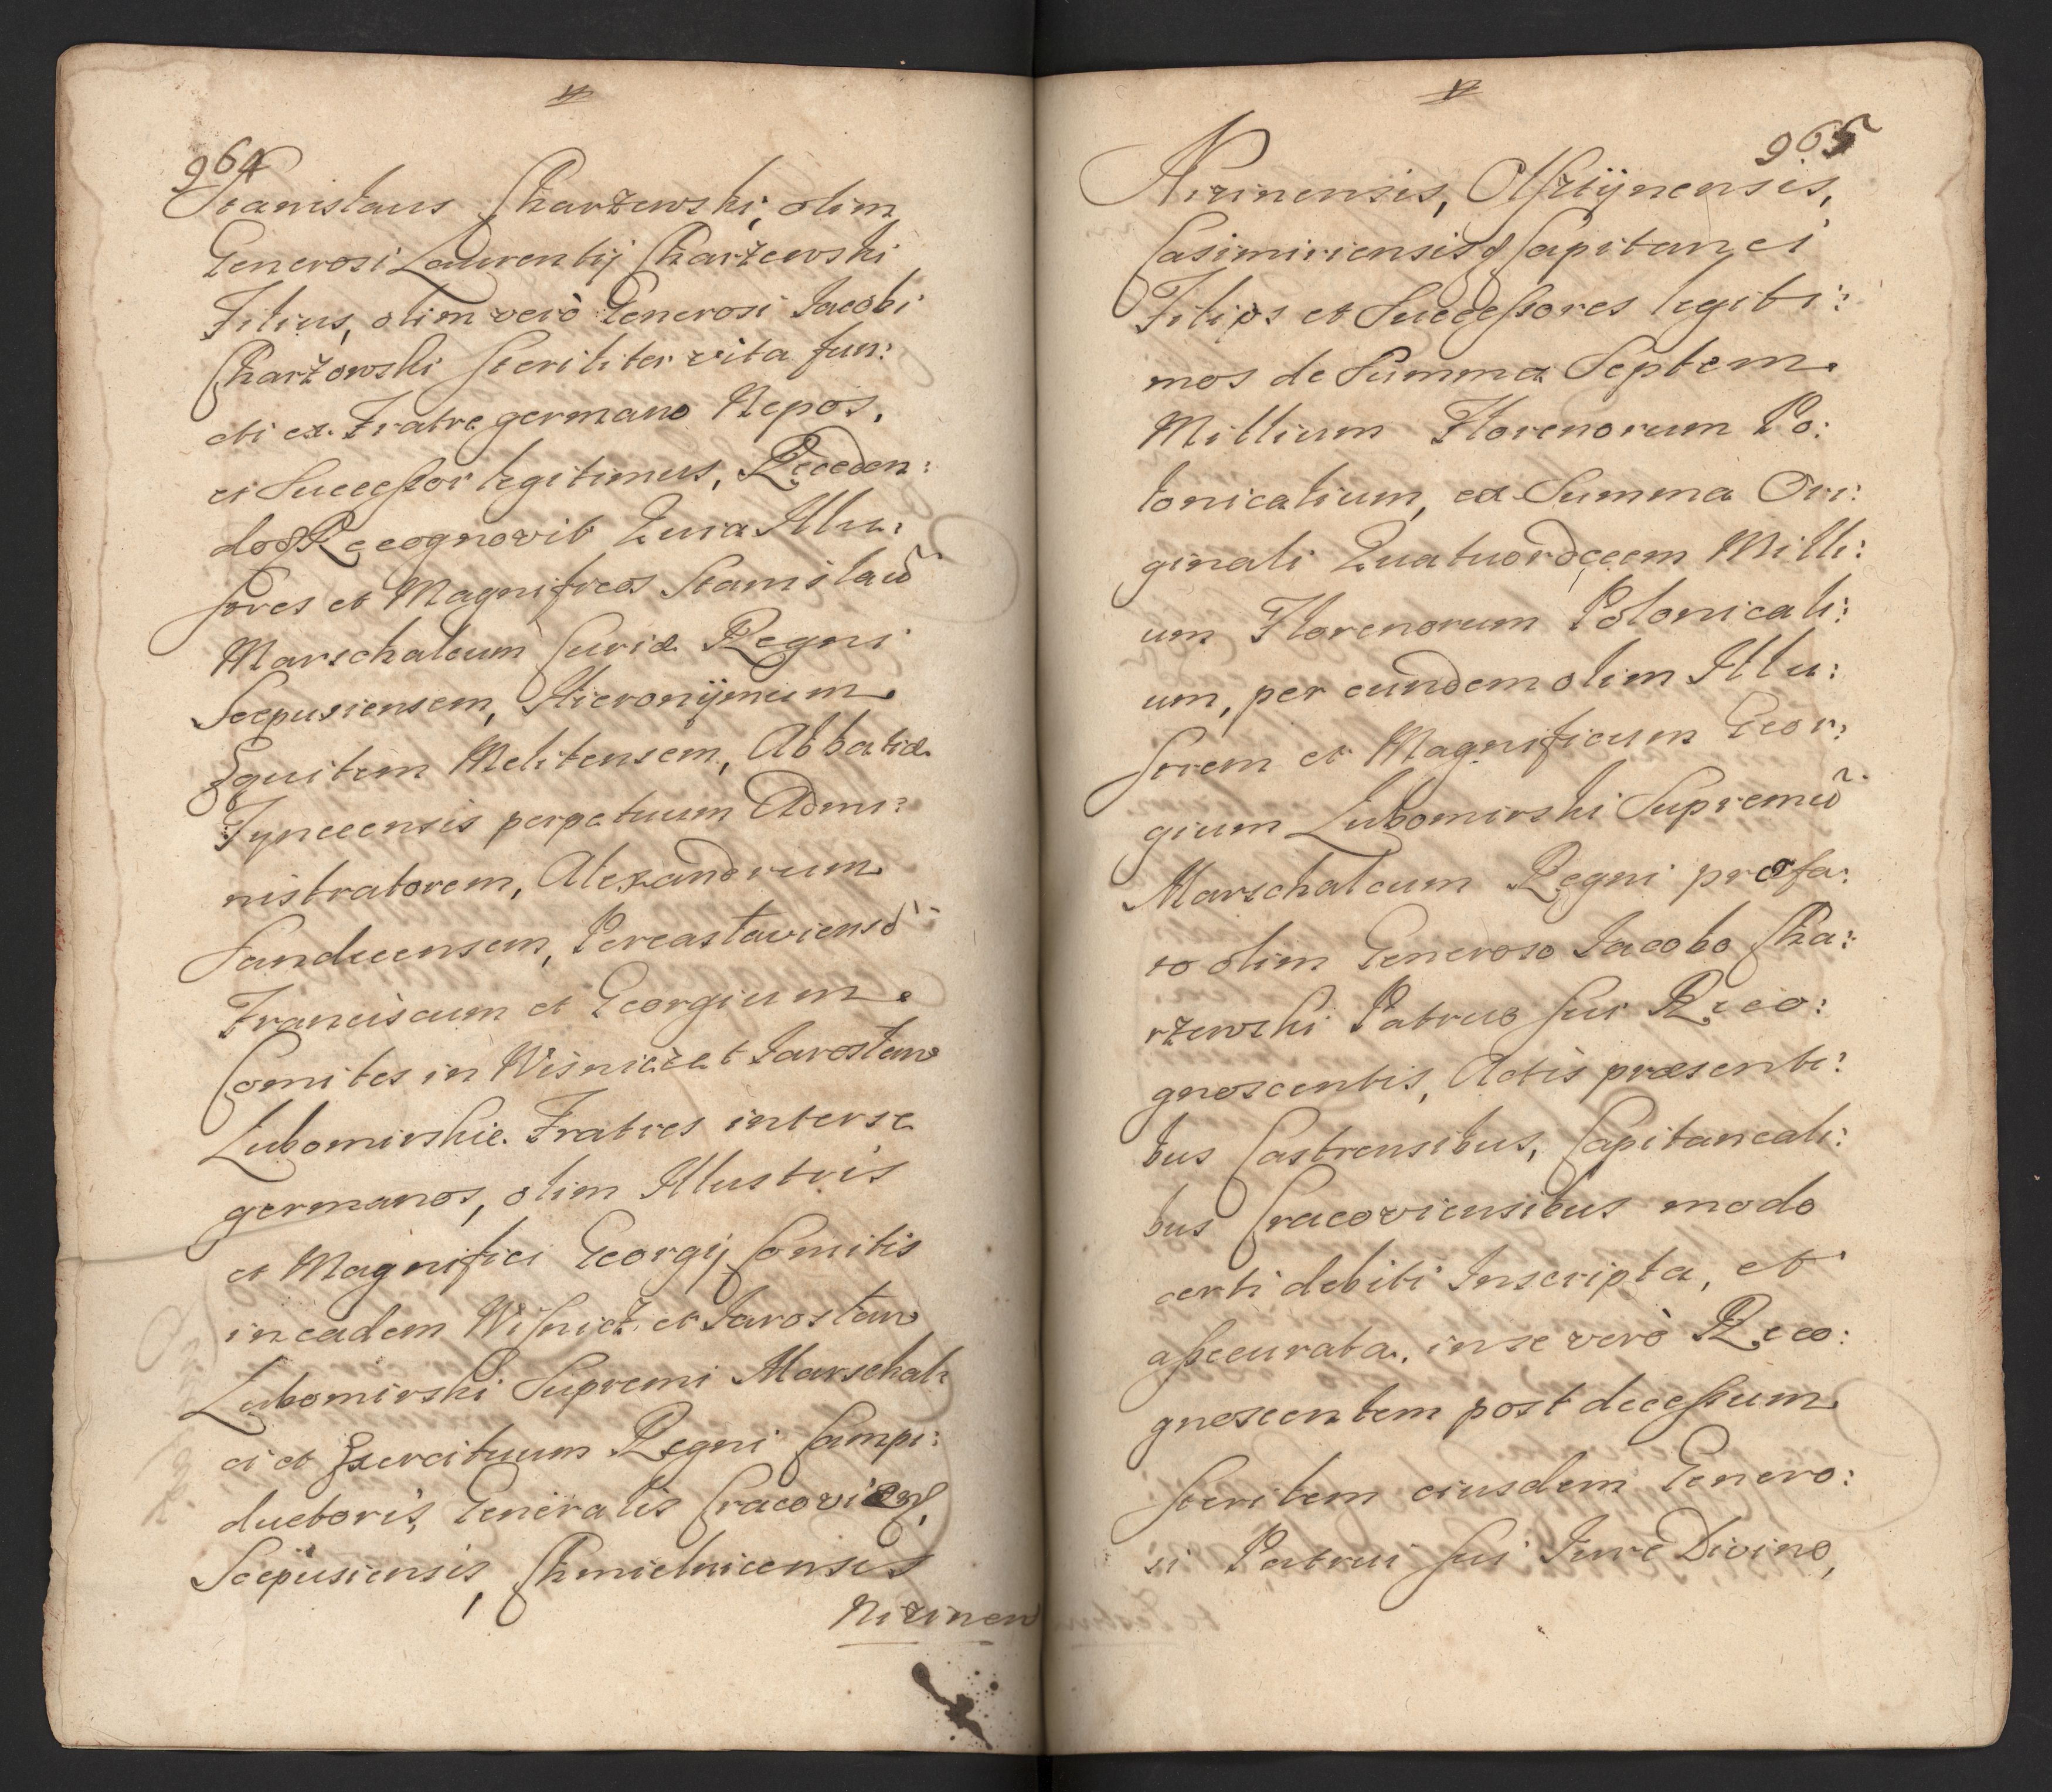 964
Stanislaus Charzewski, olim
Generosi Laurentij Charzewski
Filius, olim verò Generosi Iacobi
Charzowski sterilitèr vita fun:
cti ex Fratre germano Nepos,
et Successor legitimus, Recedendo:
dosq Recognovit Quia Illu:
stres et Magnificos Stanislaũ
Marschalcum Curiæ Regni
Scepusiensem, Hieronÿmum
Equitem Melitensem, Abbatiæ
Tynecensis perpetuum Admi:
nistratorem, Alexandrum
Sandecensem, Pereaslaviensẽ
Franciscum et Georgium
Comites in Wisnicz et Iaroslaw
Lubomirskie Fratres interse
germanos, olim Illustris
et Magnifici Georgij Comitis
in eadem Wisnicz et Iaroslaw
Lubomirski Supremi Marschal:
ci et Exercituum Regni Campi:
ductoris, Generalis Cracovien,
Scepusiensis, Chmielnicensis
Nizinen
965
Nizinensis, Olsztÿnensis,
Casimiriensisq Capitanei
Filios et Successores legiti:
mos de Summa Septem
Millium Florenorum Po:
lonicalium, ex Summa Ori:
ginali Quatuordecem Milli:
um Florenorum Polonicali:
um, per eundem olim Illu:
strem et Magnificum Geor:
gium Lubomirski Supremũ
Marschalcum Regni præfa:
to olim Generoso Iacobo Cha:
rzewski Patruo sui Reco:
gnoscentis, Actis præsenti:
bus Castrensibus, Capitaneali:
bus Cracoviensibus modo
certi debiti Inscripta, et
assecurata, in se verò Reco:
gnoscentem post decessum
sterilem eiusdem Genero:
si Patrui sui Iure Divino,